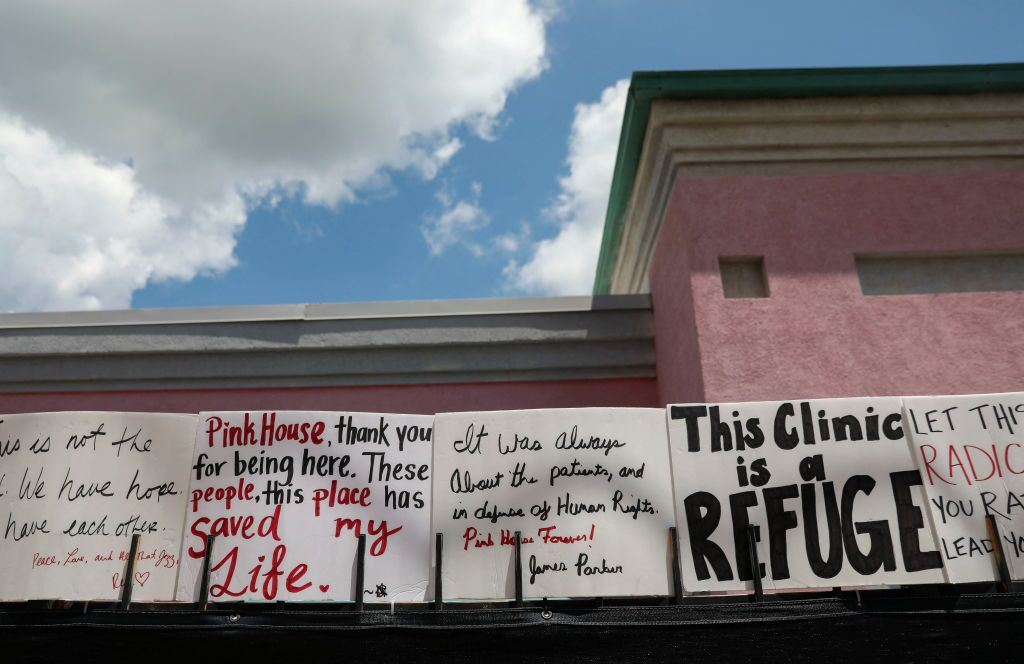 This is not the
. We have hope.
have each other.
Peace, Love, and All That Jazz,
Pink House, thank you
for being here. These
people, this place has
saved my
Life.
It was always
About the patients, and
in defense of Human Rights.
Pink House Forever!
James Parker
This Clinic
is a
REFUGE
LET THIS
RADIC
YOU RA
LEAD YO